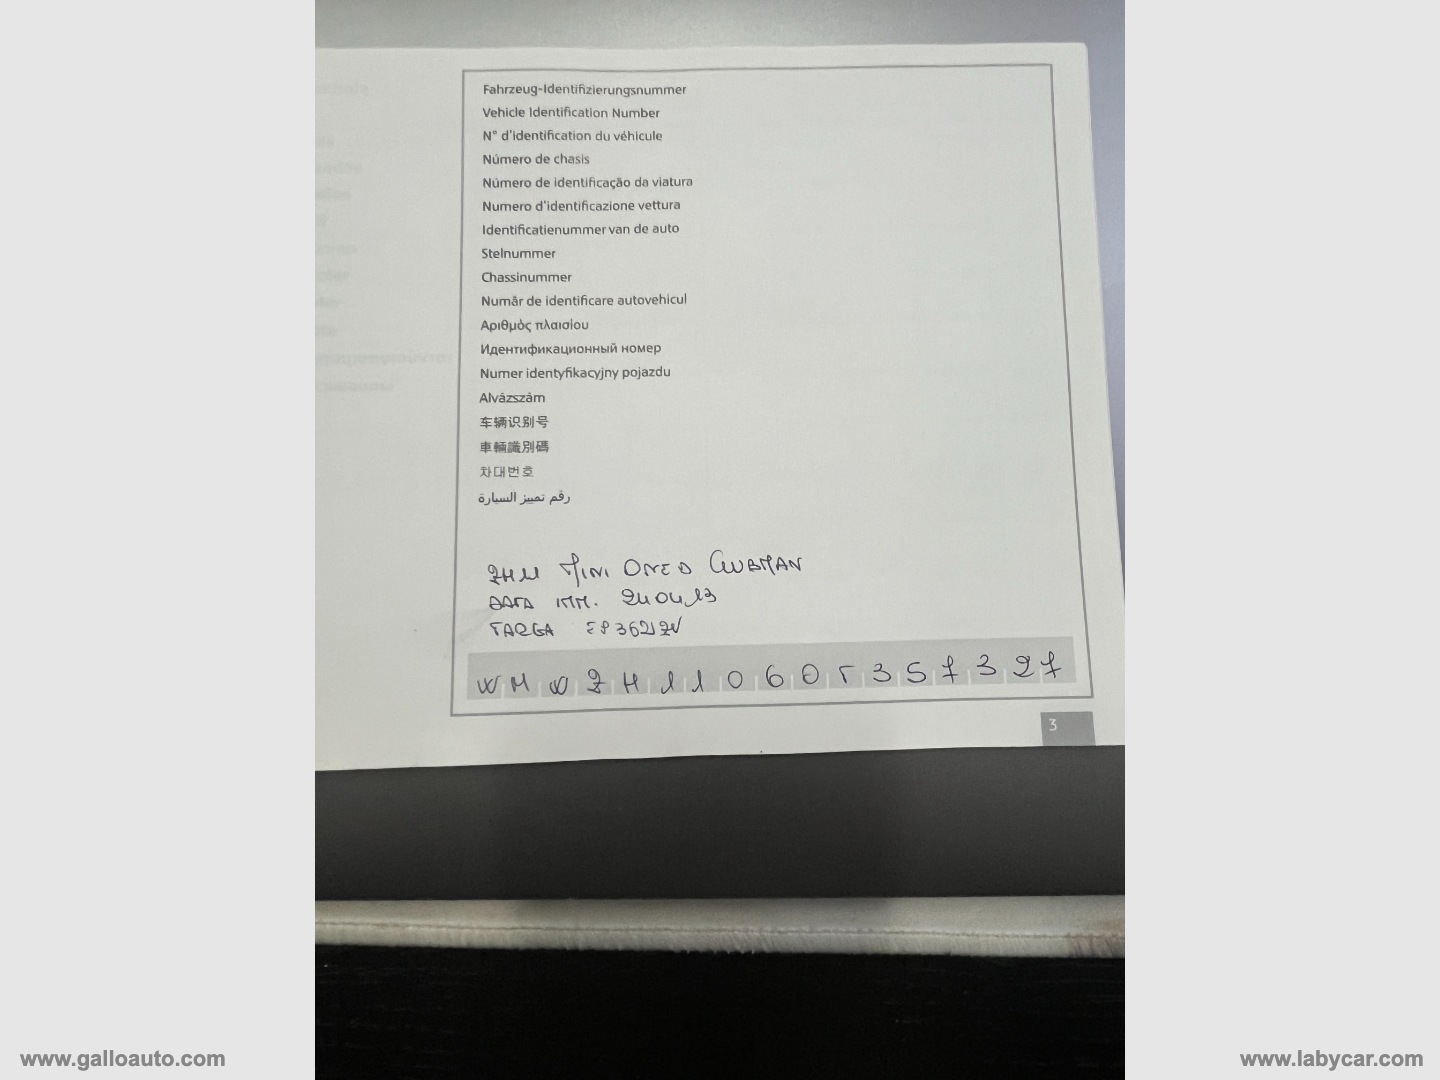 Fahrzeug-Identifizierungsnummer
Vehicle Identification Number
N° d'identification du véhicule
Número de chasis
Número de identificação da viatura
Numero d'identificazione vettura
Identificatienummer van de auto
Stelnummer
Chassinummer
Număr de identificare autovehicul
Αριθμὸς πλαισίου
Идентификационный номер
Numer identyfikacyjny pojazdu
Alvázszám
车辆识别号
車輛識別碼
차대번호
رقم تمييز السيارة
MINI ONE D CLUBMAN
DATA IMM. 240413
TARGA
WMWZH11060T357327
3
www.galloauto.com
www.labycar.com